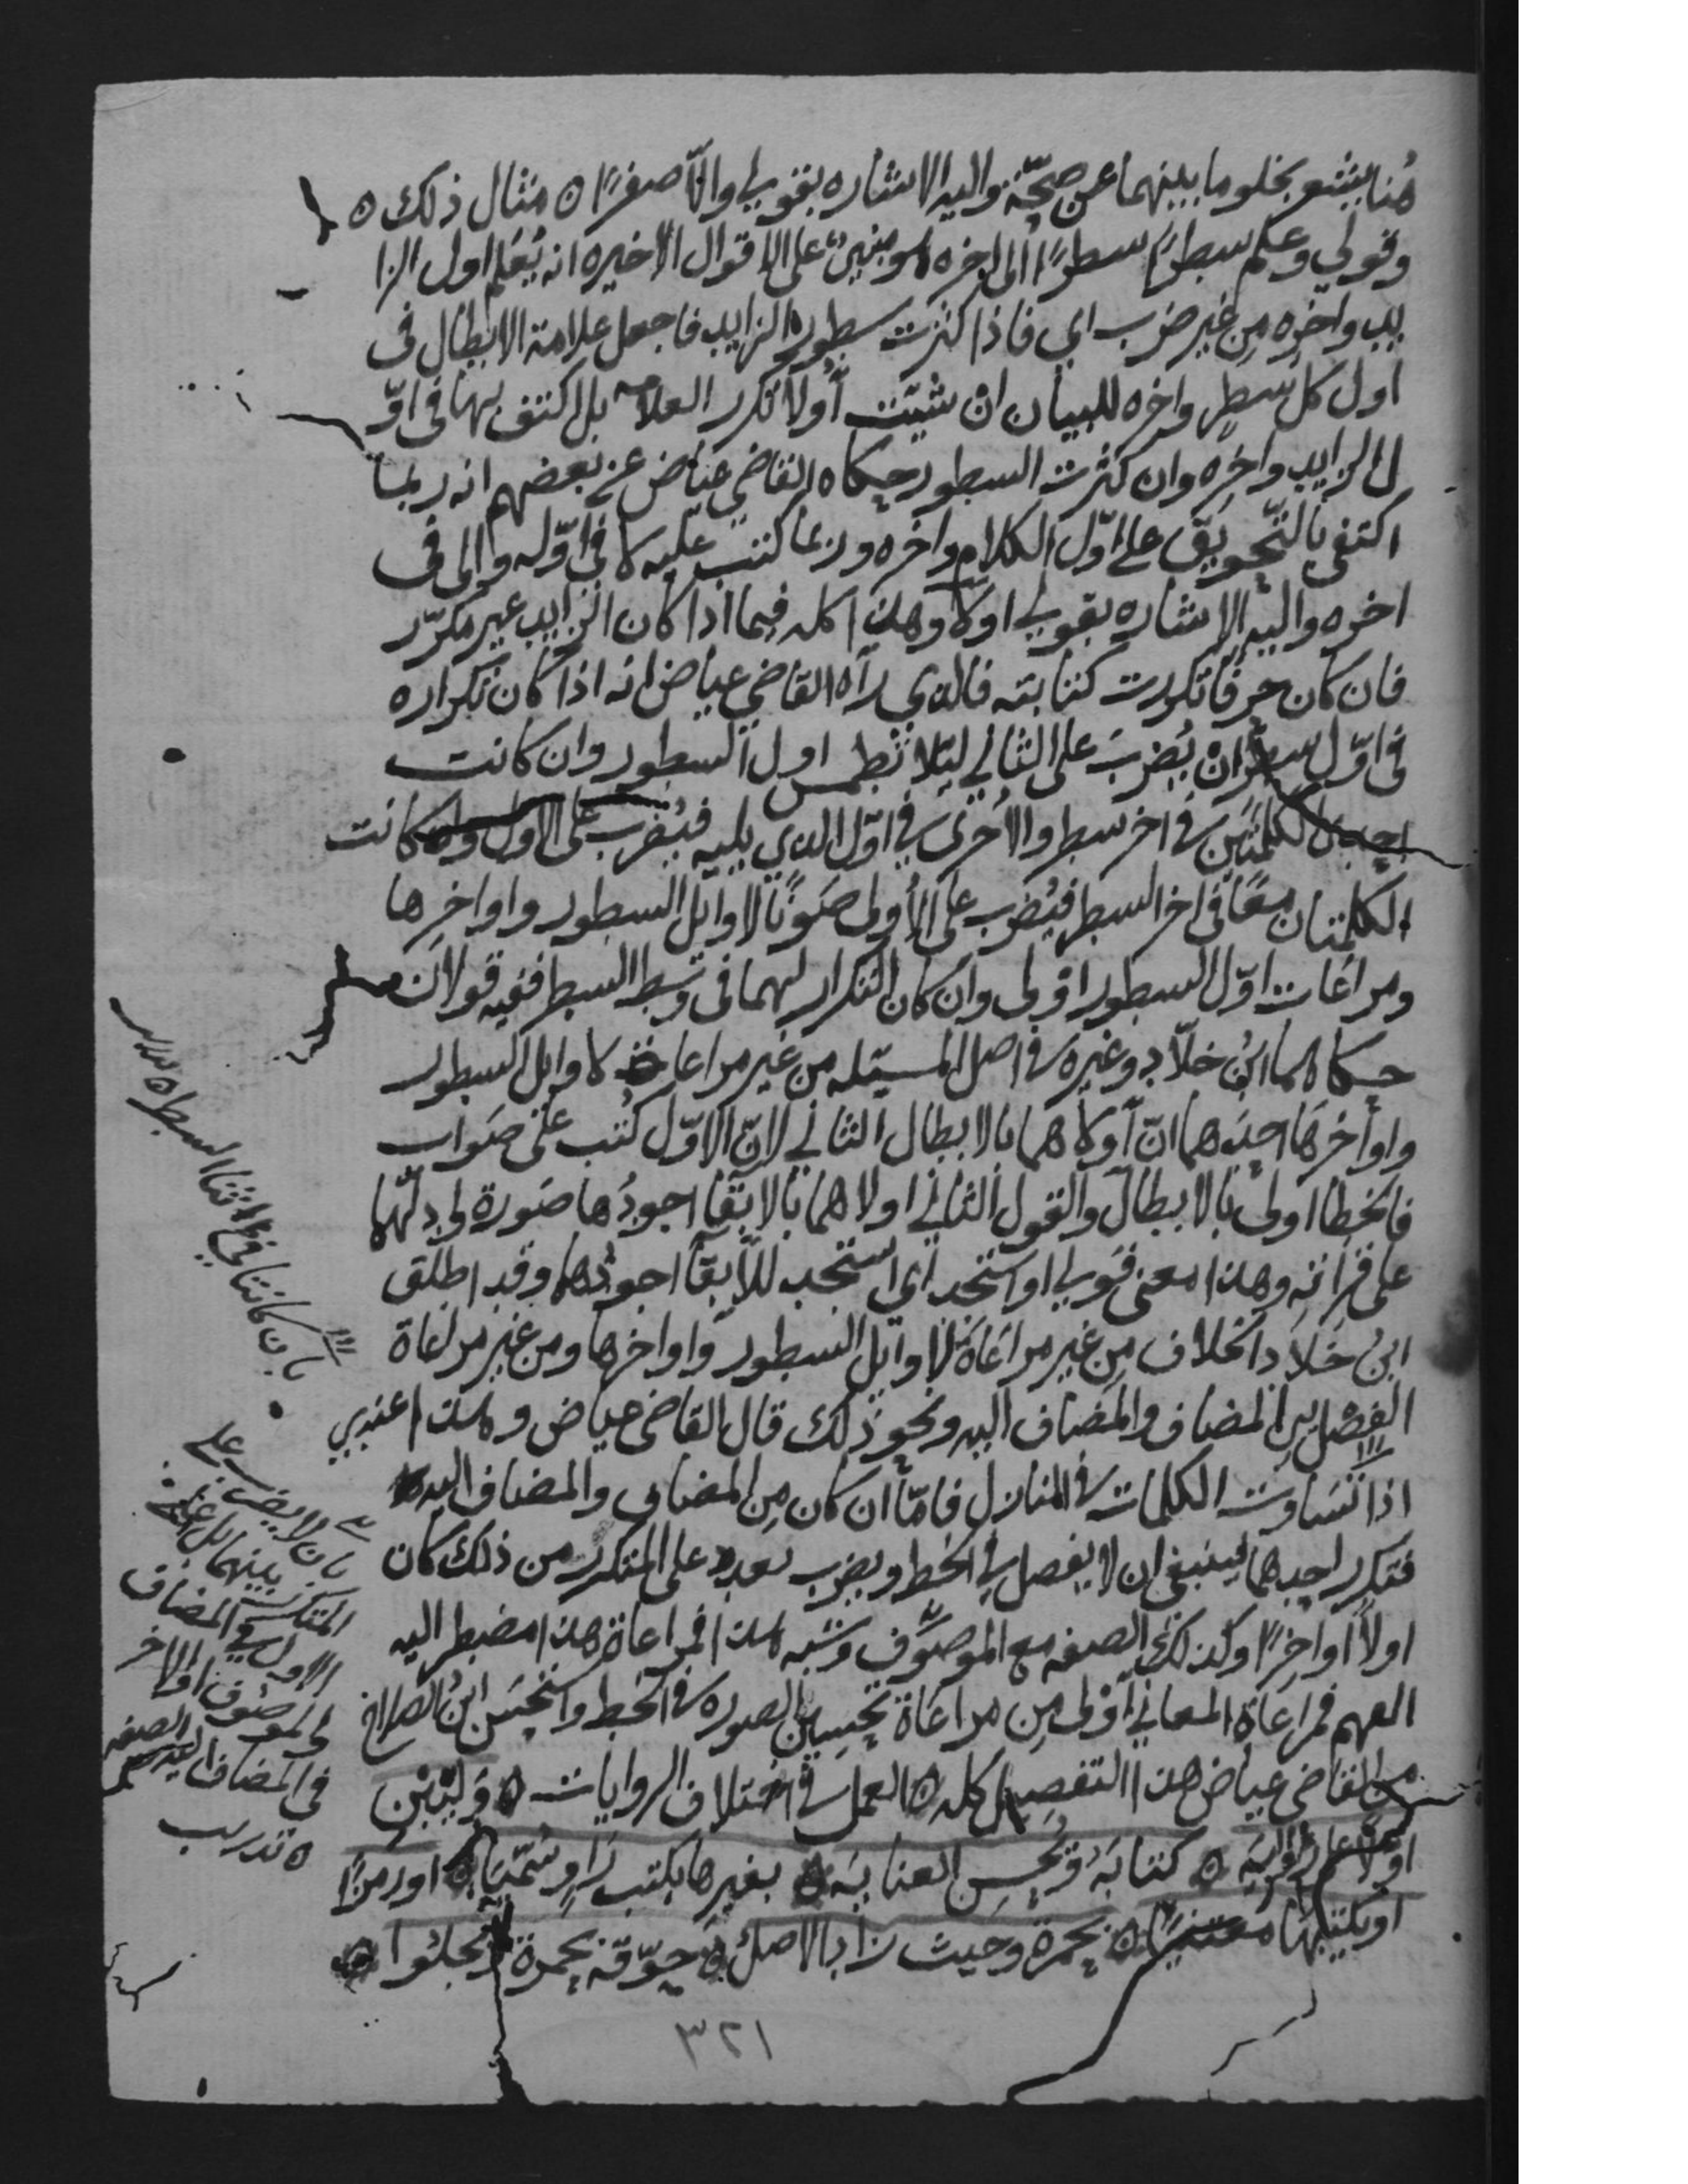 هنا يشعر بخلو ما بينهما عن صحة واليه الاشاره بقولي والا صفرا ه مثال ذلك ه
وقولي وعلم سطرا سطرا الى اخره على الاقوال الاخيره انه يُعَلم اول الزا
يد واخره مِن غير ضرب اي فاذا كثرت سطور الزايد فاجعل علامة الابطال فى
اول كل سطر واخره للبيان ان شيت أولا تكرر العلامه بل اكتف بها فى اوّ
ل الزايد واخره وان كثرت السطور حكاه القاضي عياض عن بعضهم انه ربما
اكتفى بالتّحويق على اوّل الكلام واخره وربما كتب عليه لا في اوّله والى فى
اخره واليه الاشاره بقولي اولا وهذا كله فيما اذا كان الزايد غير مكرّر
فان كان حرفا تكررت كتابته فالذي رآه القاضي عياض انه اذا كان تكراره
فى اوّل سطر ان يُضربَ على الثاني ليلا تطمس اول السطور وان كانت
احدى الكلمتين في اخر سطر والاُخرى في اوّل الذي يليه فيُضرب على الاول كانت
الكلمتان معًا فى اخر السطر فيُضرب على الأولى صَونًا لاوايل السطور واواخِرها
ومراعات اوّل السطور اولى وان كان التكرار لهما فى وسط السطر ففيه قولان
حكاهما ابنُ خلاّد وغيره في اصل المسيله من غير مراعاة لاوايل السطور
واواخرها احدهما انّ أولاهما بالابطال الثاني لانّ الاوّل كُتب على صَواب
فالخطا اولى بالابطال والقول الثاني اولاهما بالابقا اجودُها صَورة وادلّها
على قرأنه وهذا معنى قولي او استجد اي استجد للابقا اجودها وقد اطلق
ابنُ خلاد الخلاف مِن غير مراعَاة لاوايل السطور واواخرها ومن غير مراعاة
الفصل بين المضاف والمضاف اليه ونحو ذلك قال القاضى عياض وهذا عندي
اذا تَساوت الكلمات في المنازل فامّا ان كان مِن المضاف والمضاف اليه
فتكرر احدهما فينبغى ان لا يفصل في الخط ويضرب بعد على المتكرر من ذلك كان
اولاً اواخرًا وكذلك الصفه مع الموصوف وشبه هذا فمراعاة هذا مضطر اليه
الفهم فمراعاة المعاني اولى مِن مراعَاة تحسين الصوره في الخط واستحسن ابنُ الصلاح
من القاضى عياض هذا التفصيل كله ه العمل في اختلاف الروايات ه وليبن
اولا على رواية ه كتابَهُ ويُحسِن العنايَه ه بغيرها بكتب راوٍ سُمّيَا ه اورمزا
اويكتبها معتنيًا ه بحمرة وحيث زاد الاصل ه حوّقه بحمرة ويجلوا ه
بان كانتا في اثنا السطر ه تدريب
بان لا يضرب على
المتكرر بينهما بل على
الاول في المضاف
والموصوف او الاخر
في المضاف اليه والصفه
ه تدريب
٣٢١